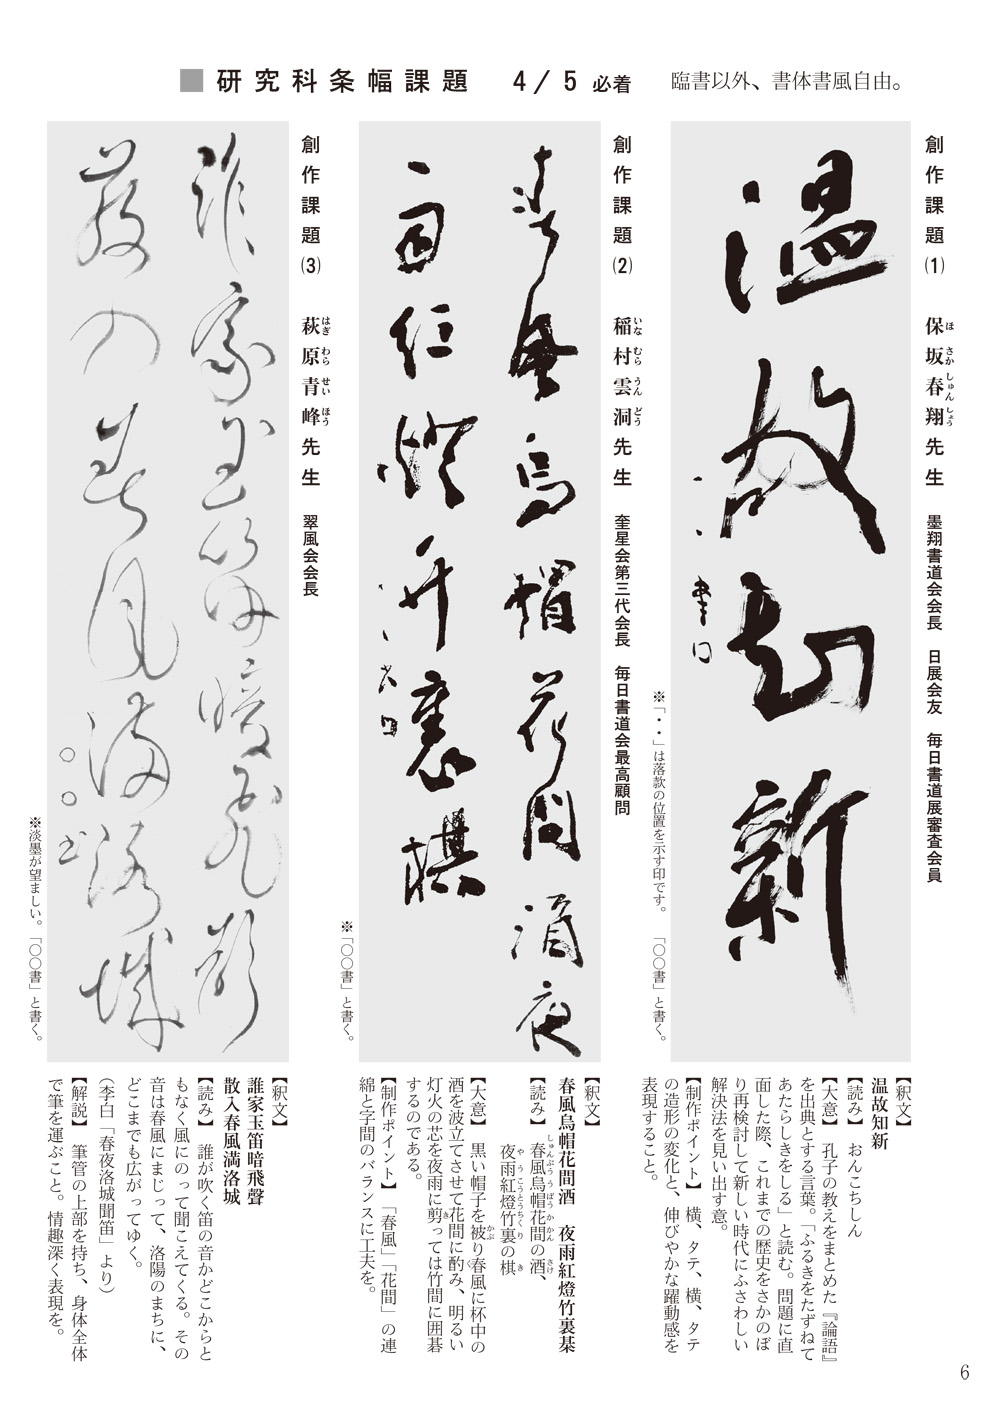 ■研究科条幅課題 4/5 必着 臨書以外、書体書風自由。
創作課題(1) 保坂春翔先生 墨翔書道会会長 日展会友 毎日書道展審査会員
ほ さか しゅん しょう
温故知新
※「・・」は落款の位置を示す印です。 「〇〇書」と書く。
【釈文】
温故知新
【読み】 おんこちしん
【大意】 孔子の教えをまとめた『論語』
を出典とする言葉。「ふるきをたずねて
あたらしきをしる」と読む。問題に直
面した際、これまでの歴史をさかのぼ
り再検討して新しい時代にふさわしい
解決法を見い出す意。
【制作ポイント】 横、タテ、横、タテ
の造形の変化と、伸びやかな躍動感を
表現すること。
創作課題(2) 稲村雲洞先生 奎星会第三代会長 毎日書道会最高顧問
いな むら うん どう
春風烏帽花間酒夜
雨紅燈竹裏棋
※「〇〇書」と書く。
【釈文】
春風烏帽花間酒 夜雨紅燈竹裏棊
【読み】 春風烏帽花間の酒、
しゅんぷう うぼう かかん さけ
夜雨紅燈竹裏の棋
やう こうとう ちくり き
【大意】 黒い帽子を被り春風に杯中の
かぶ
酒を波立てさせて花間に酌み、明るい
く
灯火の芯を夜雨に剪っては竹間に囲碁
き
するのである。
【制作ポイント】 「春風」「花間」の連
綿と字間のバランスに工夫を。
創作課題(3) 萩原青峰先生 翠風会会長
はぎ わら せい ほう
誰家玉笛暗飛聲
散入春風満洛城
〇〇書
※淡墨が望ましい。「〇〇書」と書く。
【釈文】
誰家玉笛暗飛聲
散入春風満洛城
【読み】 誰が吹く笛の音かどこからと
もなく風にのって聞こえてくる。その
音は春風にまじって、洛陽のまちに、
どこまでも広がってゆく。
(李白「春夜洛城聞笛」より)
【解説】 筆管の上部を持ち、身体全体
で筆を運ぶこと。情趣深く表現を。
6